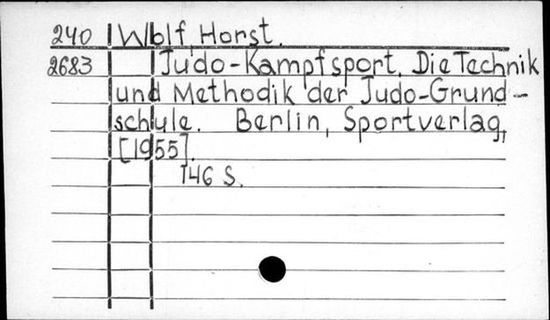 240 Wolf, Horst.
2683 Judo-Kampfsport. Die Technik
und Methodik der Judo-Grund-
schule. Berlin, Sportverlag,
[1955].
146 S.